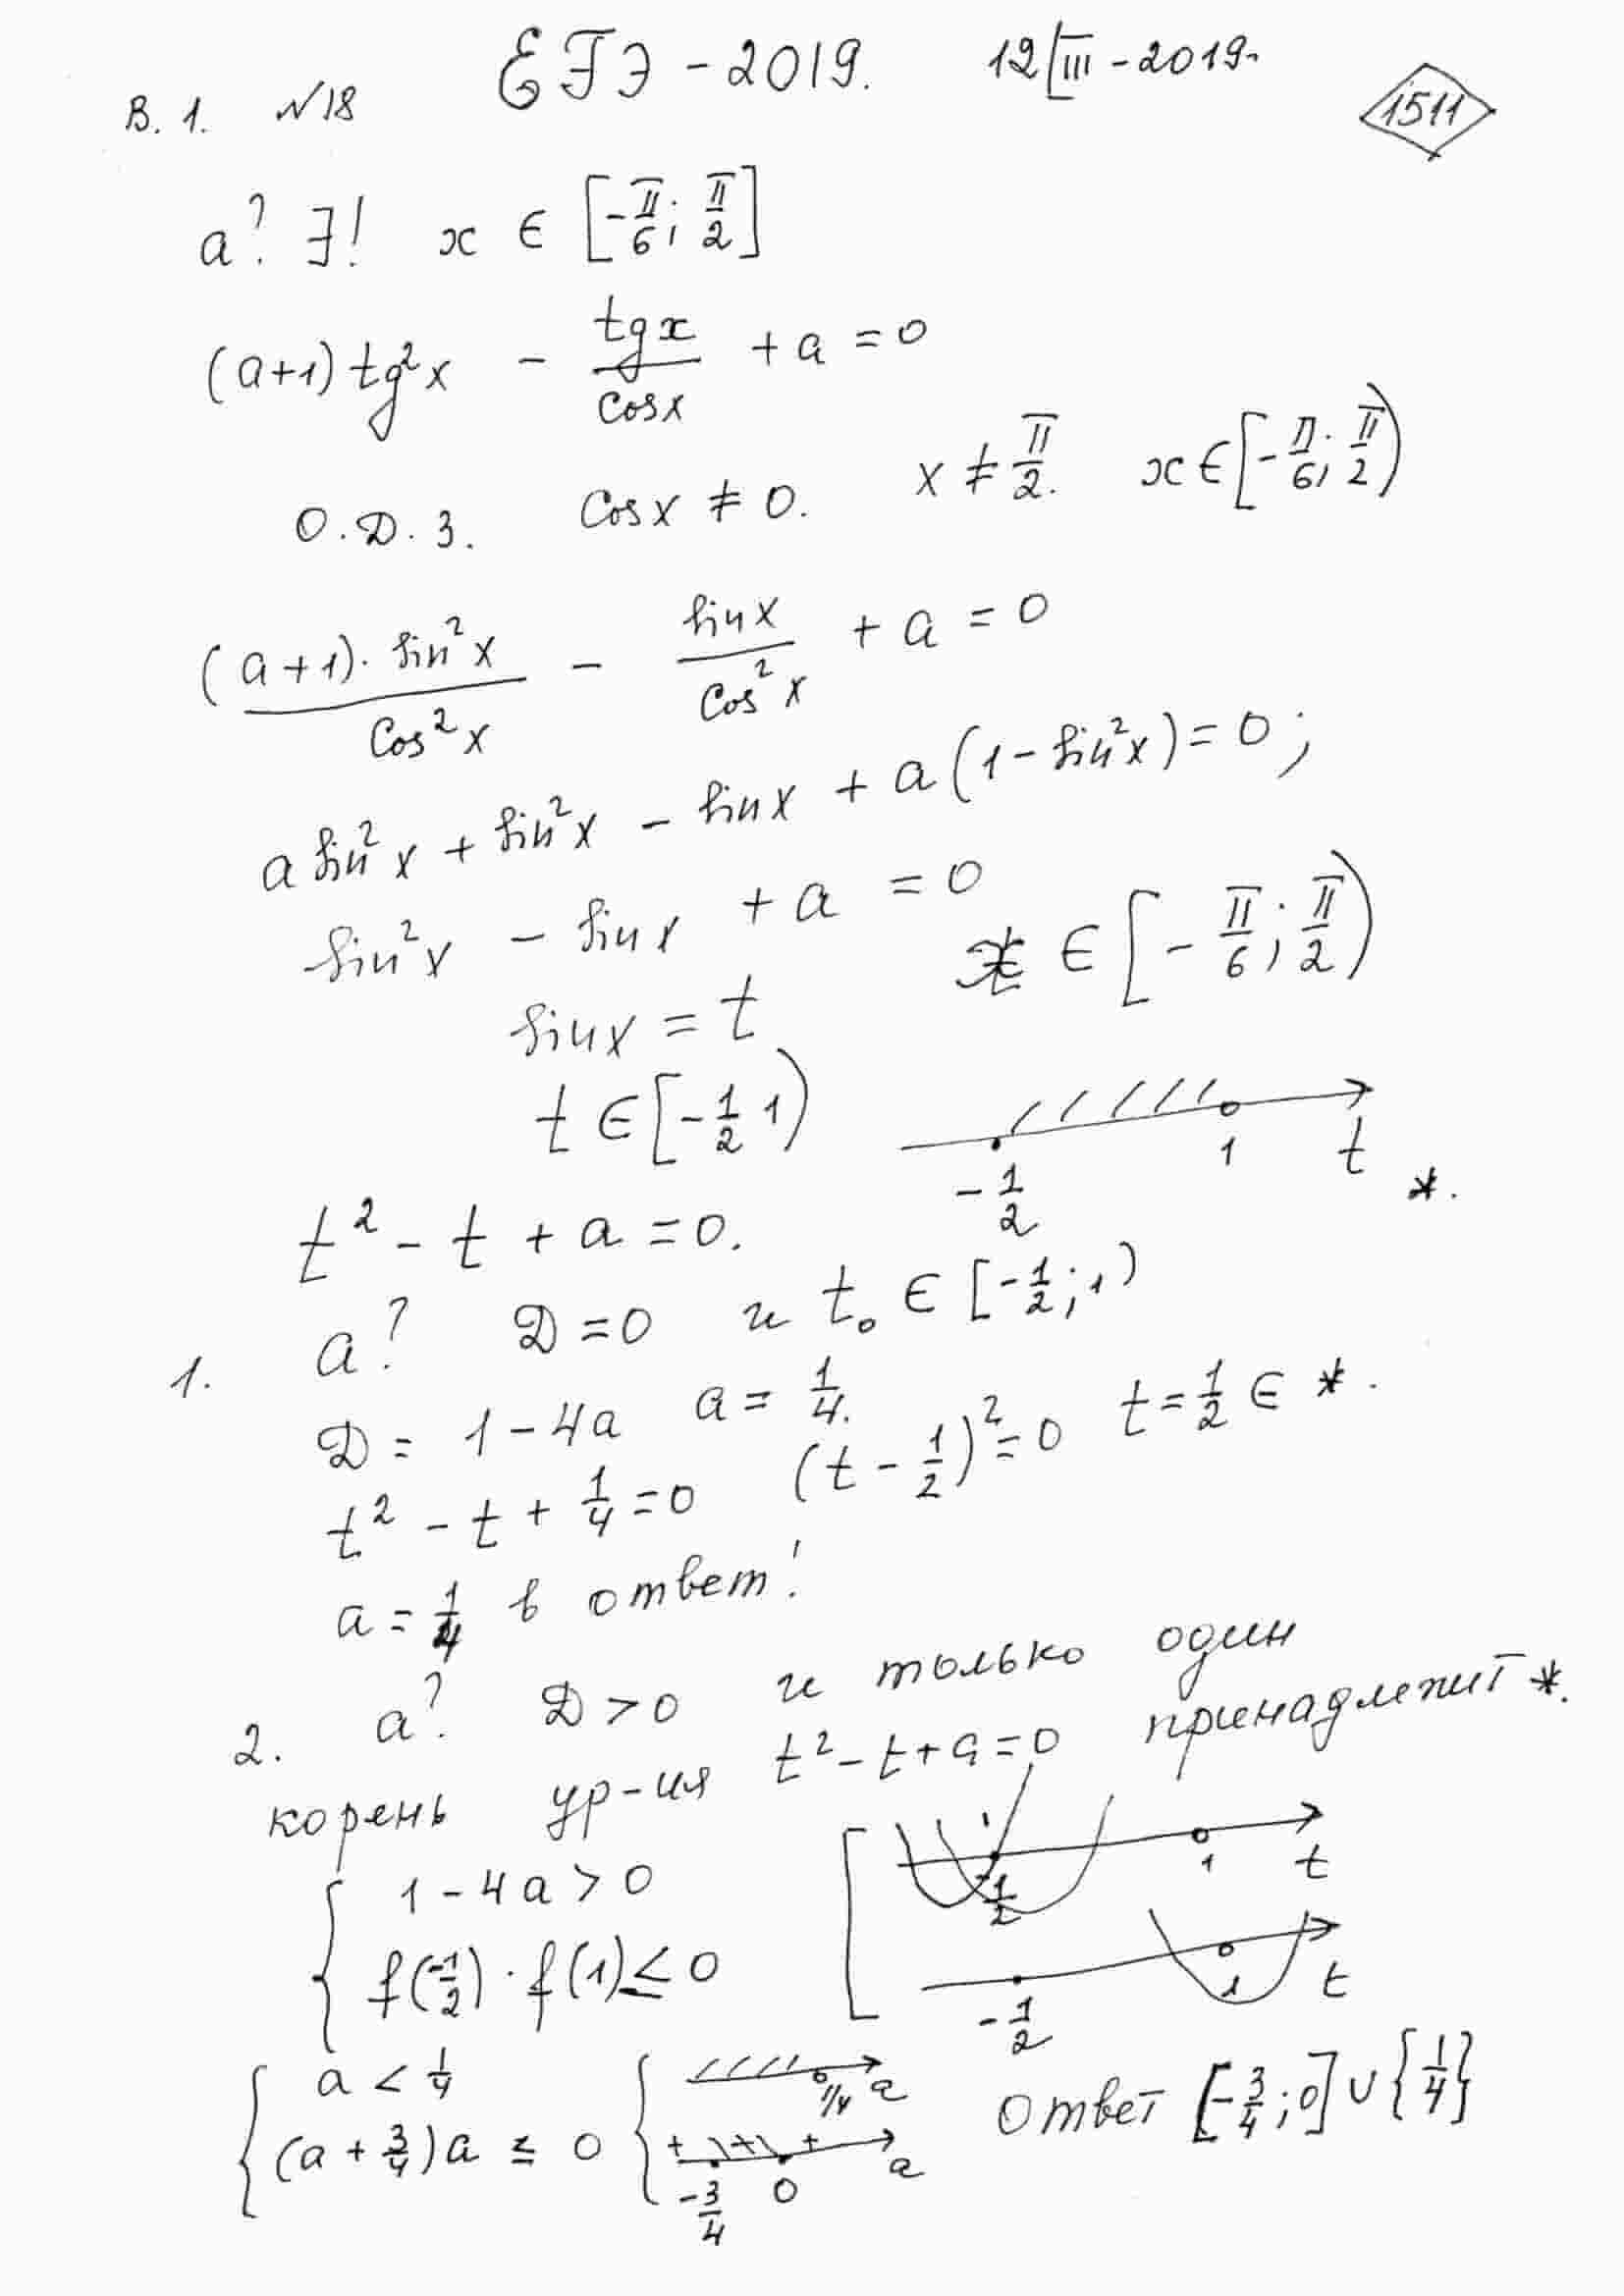 ЕГЭ - 2019. 12/III - 2019.
В. 1. №18
1511
a? ∃! x ∈ [-π/6; π/2]
(a+1) tg²x - tgx/cosx + a = 0
О.Д.З. cosx ≠ 0. x ≠ π/2. x ∈ [-π/6; π/2)
(a+1)·sin²x/cos²x - sinx/cos²x + a = 0
a sin²x + sin²x - sinx + a(1 - sin²x) = 0;
sin²x - sinx + a = 0
x ∈ [-π/6; π/2)
sinx = t
t ∈ [-1/2 1)
-1/2 1 t *.
t² - t + a = 0.
1. a? D = 0 и t₀ ∈ [-1/2; 1)
D = 1 - 4a a = 1/4. 
t² - t + 1/4 = 0 (t - 1/2)² = 0 t = 1/2 ∈ *.
a = 1/4 в ответ!
2. a? D > 0 и только один
корень ур-ия t² - t + a = 0 принадлежит *.
{ 1 - 4a > 0
f(-1/2)·f(1) ≤ 0
[ -1/2 1 t
-1/2 1 t
{ a < 1/4
(a + 3/4)a ≤ 0
{ 1/4 a
+ - + a
-3/4 0
Ответ [-3/4; 0] ∪ {1/4}